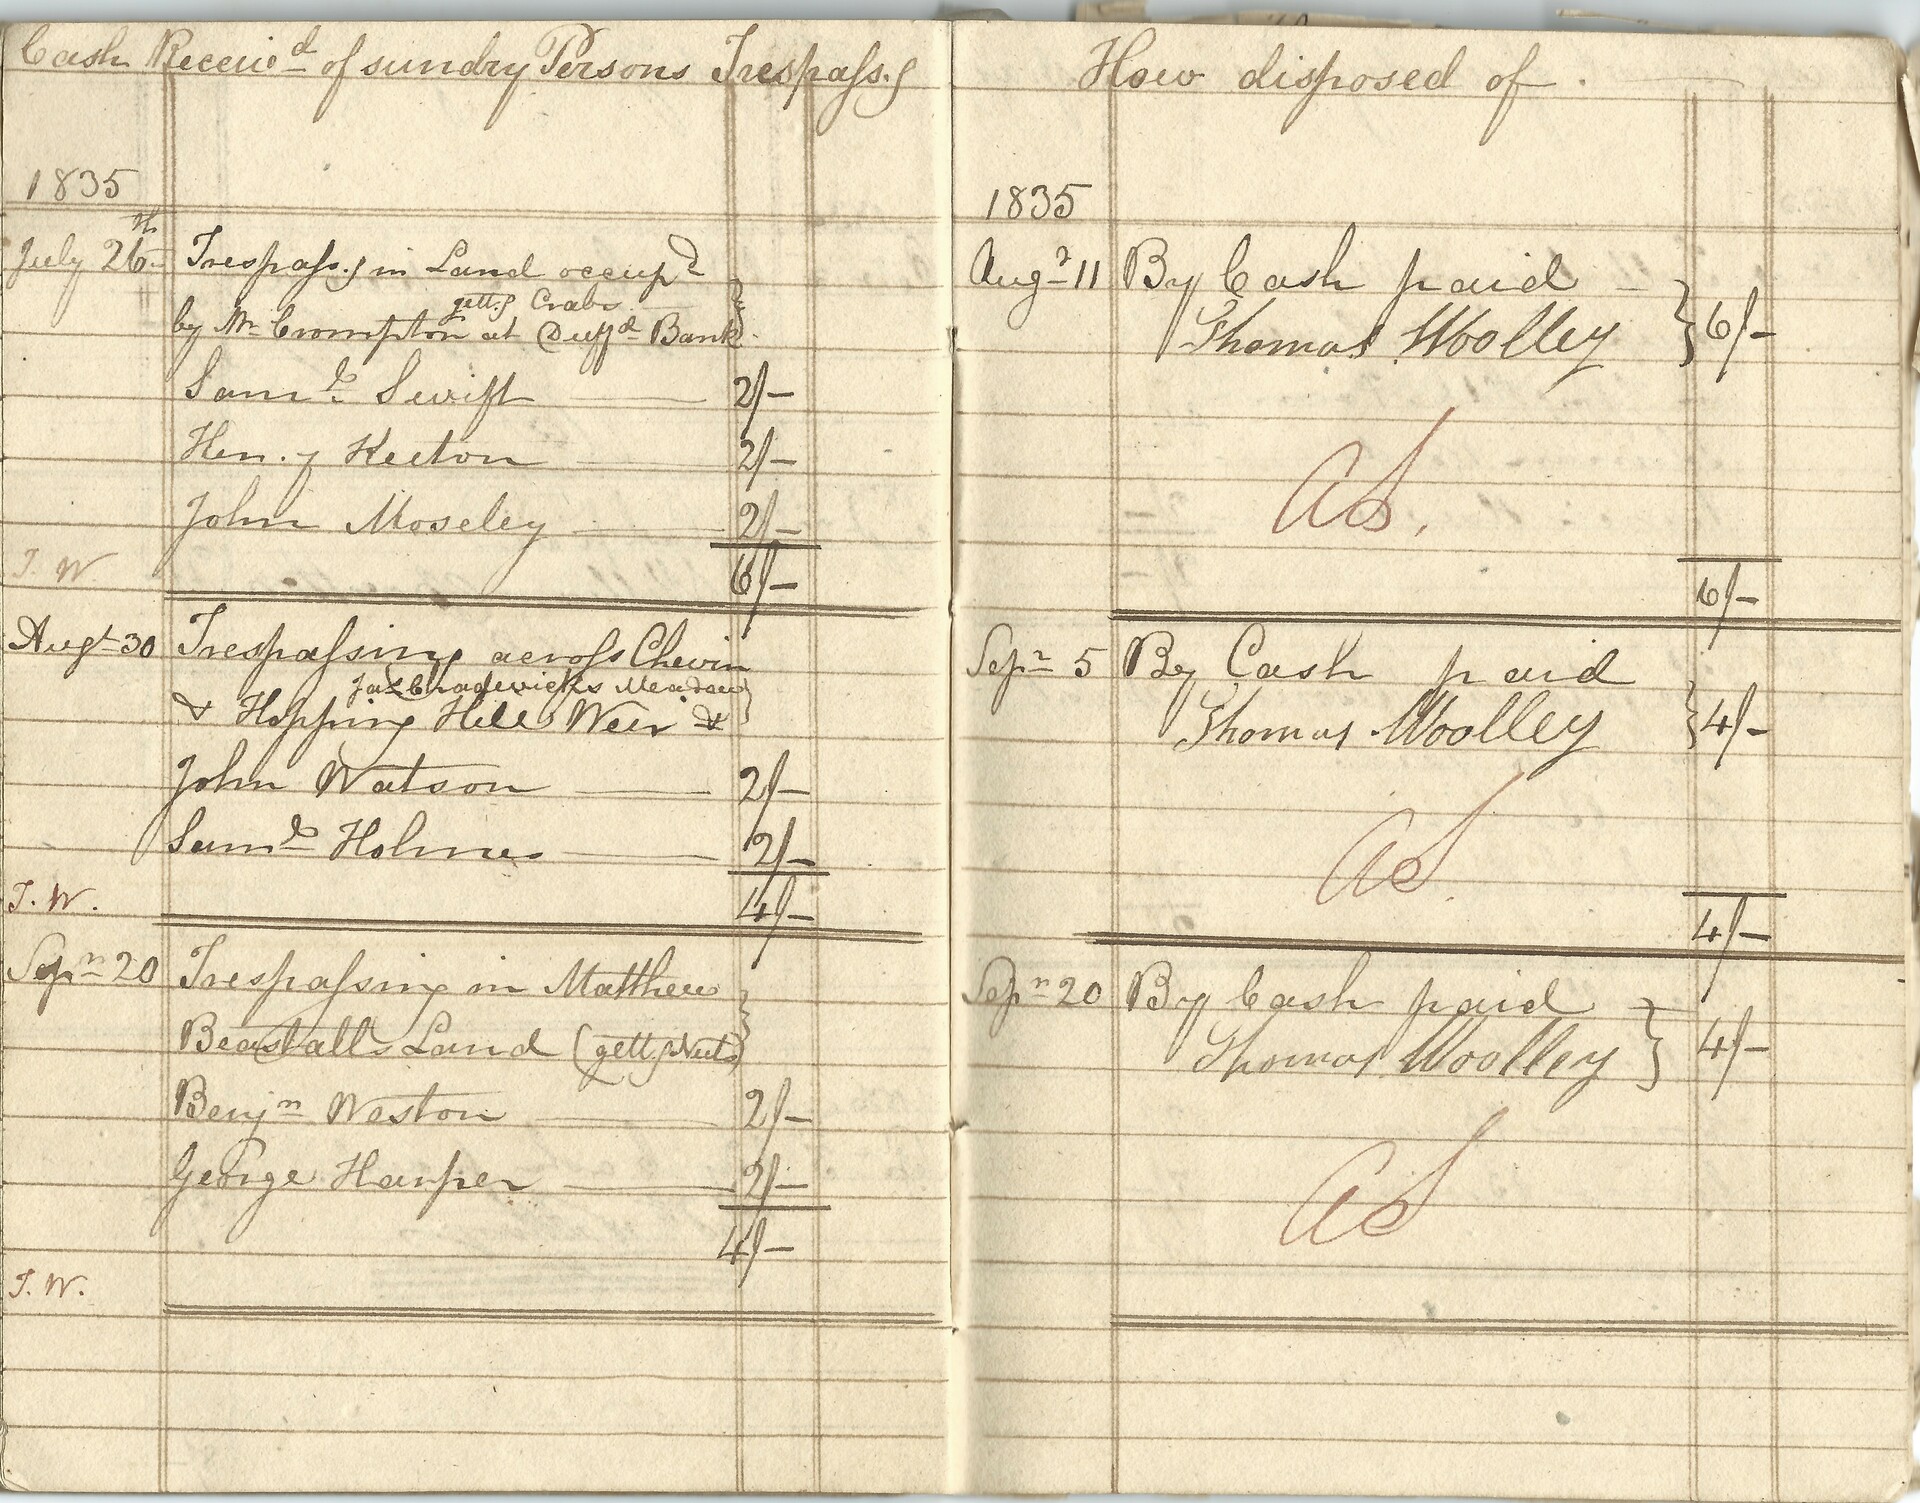 Cash Receiv^d of sundry Persons Trespass.g
1835
July 26th Trespass.g in Land occup^d
gett.g Crabs
by Mr Crompton at Duff^d Bank
Sam^l Swift 2/-
Hen.y Keeton 2/-
John Moseley 2/-
T. W. 6/-
Augt 30 Trespassing across Chevin
Jas Chadwick's Meadow
& Hopping Hill Weir &
John Watson 2/-
Sam^l Holmes 2/-
T. W. 4/-
Sepr 20 Trespassing in Matthew
Beastall's Land (gett.g Nuts)
Benjn Weston 2/-
George Harper 2/-
4/-
T. W.
How disposed of.
1835
Augt 11 By Cash paid
Thomas Woolley 6/-
AS.
6/-
Sepr 5 By Cash paid
Thomas Woolley 4/-
AS
4/-
Sepr 20 By Cash paid
Thomas Woolley 4/-
AS